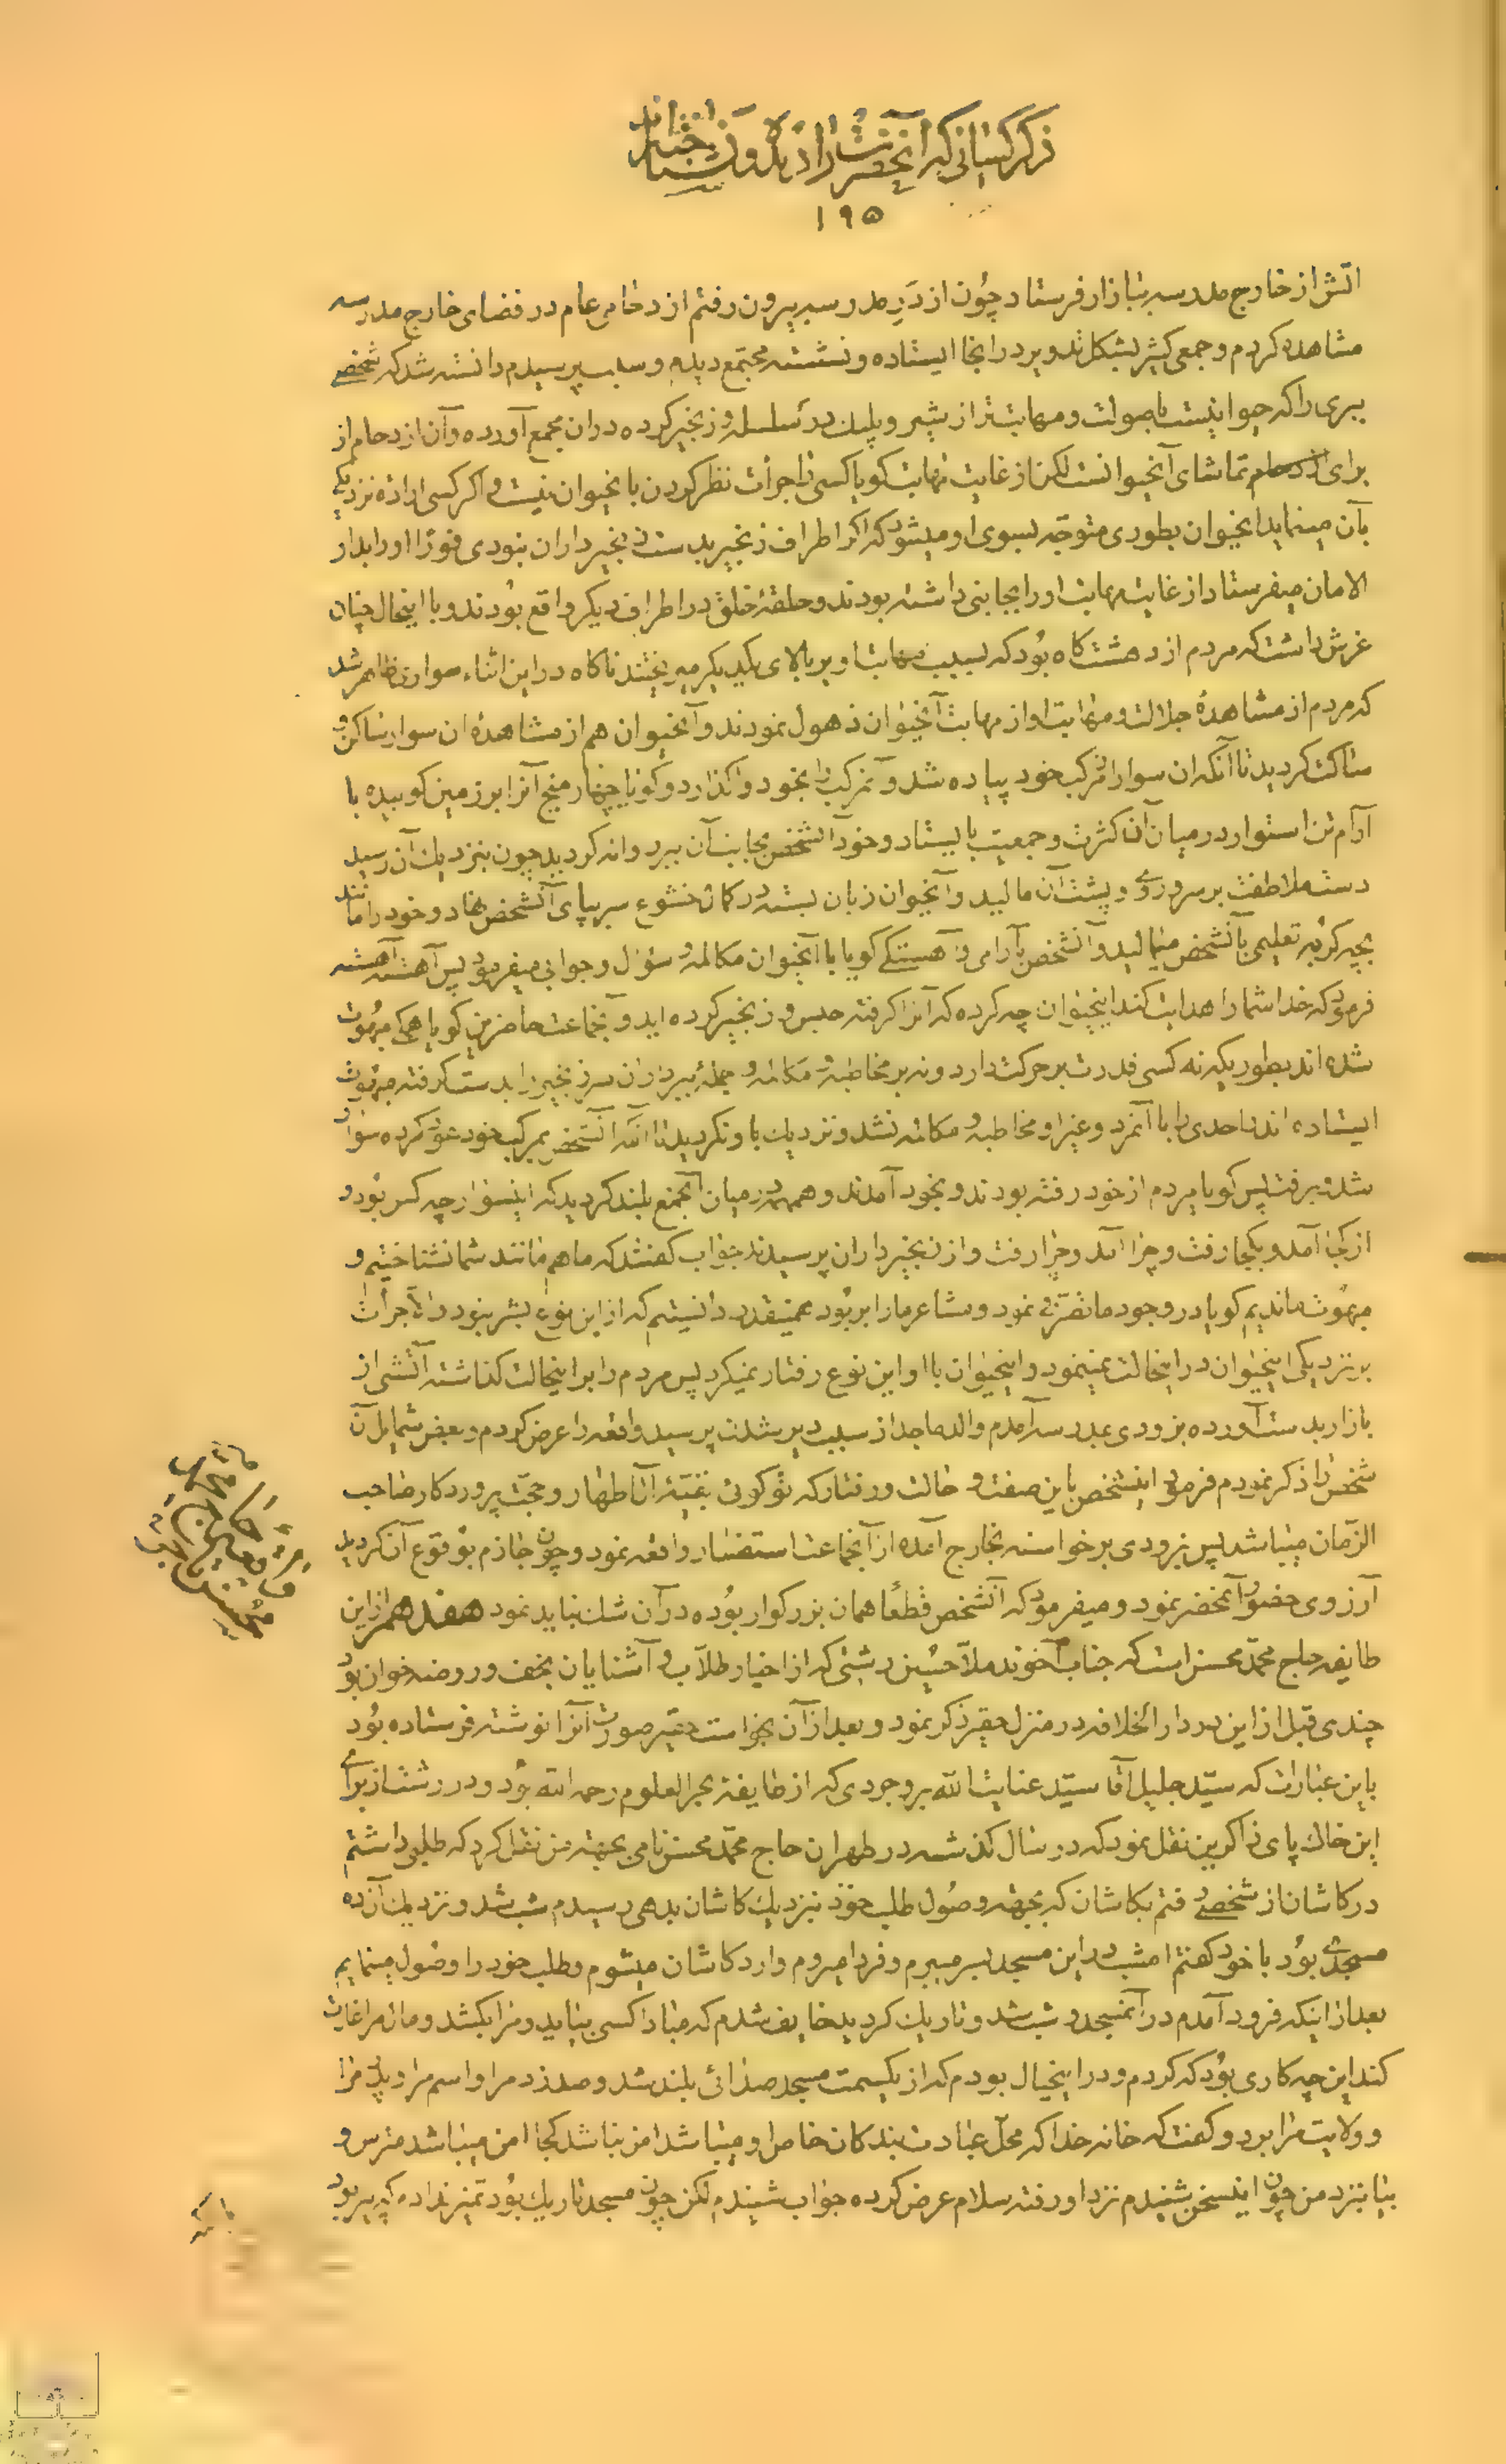 ذکر کسانی که آنحضرت را دیده و نشناخته‌اند
۱۹۵
آتش از خارج مدرسه ببازار فرستاد چون از در مدرسه بیرون رفتم ازدحام عام در فضای خارج مدرسه
مشاهده کردم و جمعی کثیر بشکل تدویر در آنجا ایستاده و نشسته مجتمع دیدم و سبب پرسیدم دانسته شد که شخصی
ببری را که حیوانیست با صولت و مهابت‌تر از شیر و پلنگ در سلسله و زنجیر کرده در آن مجمع آورده و آن ازدحام از
برای تماشای آنحیوانست لکن از غایت مهابت گویا کسی را جرأت نظر کردن بانحیوان نیست و اگر کسی اراده نزدیکی
بآن مینماید انحیوان بطوری متوجه بسوی او میشود که اگر اطراف زنجیر بدست زنجیرداران نبودی فورا او را بدار
الامان میفرستاد از غایت مهابت او را بجانبی داشته بودند و حلقه خلق در اطراف دیگر واقع بودند و با اینحال چنان
غرش داشت که مردم از دهشت گاه بود که بسبب مهابت او بر بالای یکدیگر میریختند ناگاه در این اثناء سواری ظاهر شد
که مردم از مشاهده جلالت و مهابت او از مهابت آنحیوان ذهول نمودند و آنحیوان هم از مشاهده ان سوار ساکن و
ساکت گردید تا آنکه ان سوار از مرکب خود پیاده شد و مرکب را بخود واگذارد و گویا چهار میخ آنرا بر زمین کوبیده با
آرام تن استوار در میان آن کثرت و جمعیت بایستاد و خود آنشخص بجانب آن ببر روانه گردید چون بنزدیک آن رسید
دست ملاطفت بر سر و روی و پشت آن مالید و آنحیوان زبان بسته در کمال خشوع سر بپای آنشخص نهاد و خود را مانند
بچه گربه تعلیمی بآنشخص میمالید و آنشخص بآرامی و آهستگی گویا با آنحیوان مکالمه و سؤال و جوابی میفرمود پس آهسته آهسته
فرمود که خدا شما را هدایت کند اینحیوان چه کرده که آنرا گرفته حبس و زنجیر کرده‌اید و آنجماعت حاضرین گویا همگی مبهوت
شده‌اند بطوریکه نه کسی قدرت بر حرکت دارد و نه بر مخاطبه و مکالمه و جمله ببرداران سر زنجیر را بدست گرفته مبهوت
ایستاده‌اند احدی را با آنمرد و غیر او مخاطبه و مکالمه نشد و نزدیک باو نگردید تا آنکه آنشخص بمرکب خود عود کرده سوار
شد و برفت پس گویا مردم از خود رفته بودند و بخود آمدند و همهمه در میان آنجمع بلند گردید که اینسوار چه کس بود و
از کجا آمد و بکجا رفت و چرا آمد و چرا رفت و از زنجیرداران پرسیدند جواب گفتند که ما هم مانند شما نشناختیم و
مبهوت ماندیم گویا در وجود ما تصرفی نمود و مشاعر ما را بربود همینقدر دانستیم که از این نوع بشر نبود والا جرأت
بر نزدیکی اینحیوان در اینحالت نمینمود و اینحیوان با او این نوع رفتار نمیکرد پس مردم را بر اینحالت گذاشته آتشی از
بازار بدست آورده بزودی بمدرسه آمدم والد ماجد از سبب دیر شدن پرسید واقعه را عرض کردم و بعض شمایل آن
شخص را ذکر نمودم فرمود اینشخص باین صفت و حالت و رفتار که تو گوئی بقیه آل اطهار و حجت پروردگار صاحب
الزمان میباشد پس بزودی برخواسته بخارج آمده از آنجماعت استفسار واقعه نمود و چون جازم بوقوع آن گردید
آرزوی حضور آنحضر نمود و میفرمود که آنشخص قطعا همان بزرگوار بوده در آن شک نباید نمود هفدهم از این
طایفه حاج محمد محسن است که جناب آخوند ملا حسین رشتی که از اخیار طلاب و آشنایان نجف و روضه خوان بود
چندی قبل از این در دار الخلافه در منزل حقیر ذکر نمود و بعد از آن بخواست حقیر صورت آنرا نوشته فرستاده بود
باین عبارات که سید جلیل آقا سید عنایت الله بروجردی که از طایفه بحر العلوم رحمه الله بود و در رشت از برای
این خاک پای ذاکرین نقل نمود که در سال گذشته در طهران حاج محمد محسن نامی بجهته من نقل کرد که طلبی داشتم
در کاشان از شخصی رفتم بکاشان که بجهته وصول طلب خود نزدیک کاشان بدهی رسیدم شب شد و نزدیک آن ده
مسجدی بود با خود گفتم امشب در این مسجد بسر میبرم و فردا میروم وارد کاشان میشوم و طلب خود را وصول مینمایم
بعد از اینکه فرود آمدم در آنمسجد و شب شد و تاریک گردید خایف شدم که مبادا کسی بیاید و مرا بکشد و مال مرا غارت
کند این چه کاری بود که کردم و در این خیال بودم که از یکسمت مسجد صدائی بلند شد و صدا زد مرا و اسم مرا و پدر مرا
و ولایت مرا برد و گفت که خانه خدا که محل عبادت بندکان خاص او میباشد امن نباشد کجا امن میباشد مترس و
بیا بنزد من چون اینسخن شنیدم نزد او رفته سلام عرض کرده جواب شنیدم لکن چون مسجد تاریک بود تمیز نداده که پیر بود